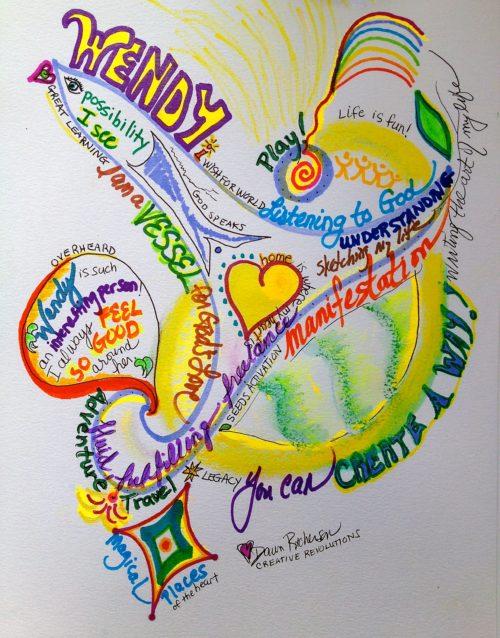 WENDY
GREAT LEARNING
possibility
I see
I am a VESSEL
for God's love
WISH FOR WORLD
GOD SPEAKS
Play!
Life is fun!
Listening to God
UNDERSTANDING
Sketching My life
Writing the art of my life
home
is where my heart
manifestation
OVERHEARD
Wendy is such
an interesting person!
I always FEEL
SO GOOD
around
her
SEEDS ACTIVATION
fluid - fulfilling - freelance
Adventure
Travel
LEGACY
You can CREATE A WAY!
Magical
Places
of the heart
Dawn Richerson
CREATIVE REVOLUTIONS